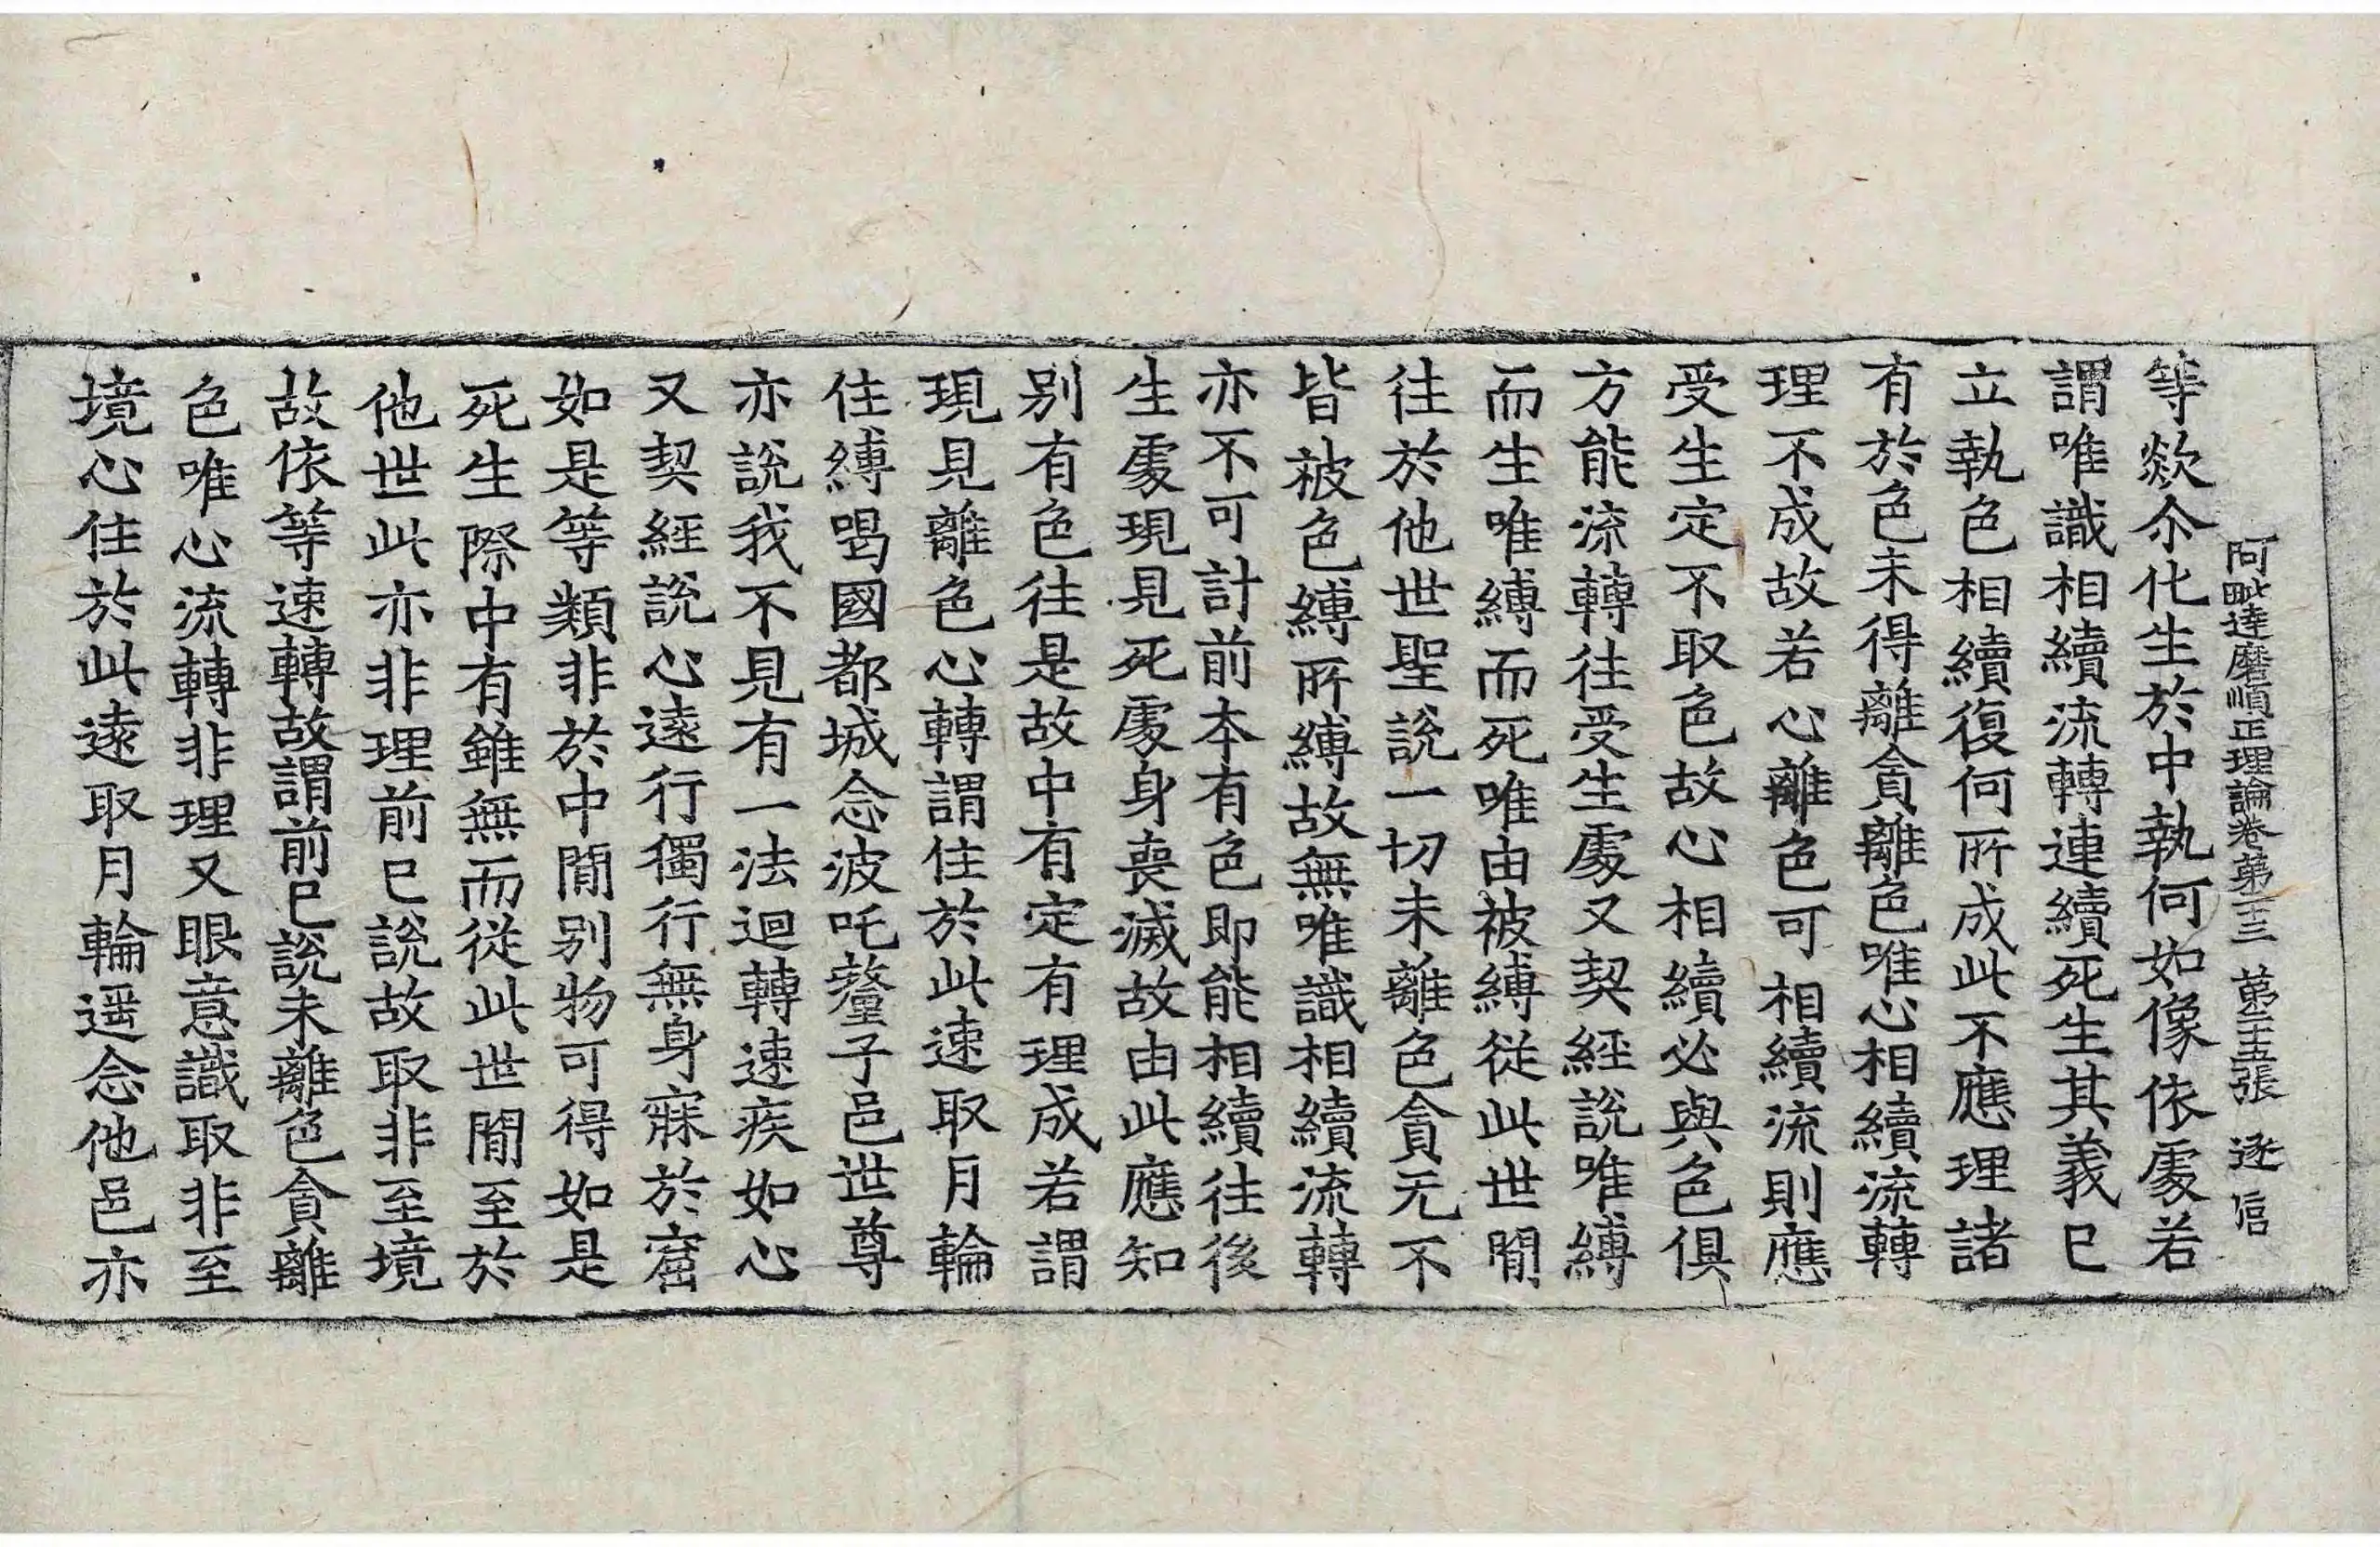 阿毗達磨順正理論卷第十三　第二十五張　逐信
等欻尒化生於中執何如像依處若
謂唯識相續流轉連續死生其義已
立執色相續復何所成此不應理諸
有於色未得離貪離色唯心相續流轉
理不成故若心離色可相續流則應
受生定不取色故心相續必與色俱
方能流轉往受生處又契經說唯縛
而生唯縛而死唯由被縛從此世閒
往於他世聖說一切未離色貪无不
皆被色縛所縛故無唯識相續流轉
亦不可計前本有色即能相續往後
生處現見死處身喪滅故由此應知
別有色往是故中有定有理成若謂
現見離色心轉謂住於此速取月輪
住縛喝國都城念波吒釐子邑世尊
亦說我不見有一法迴轉速疾如心
又契經說心遠行獨行無身寐於窟
如是等類非於中閒別物可得如是
死生際中有雖無而從此世閒至於
他世此亦非理前已說故取非至境
故依等速轉故謂前已說未離色貪離
色唯心流轉非理又眼意識取非至
境心住於此遠取月輪遥念他邑亦